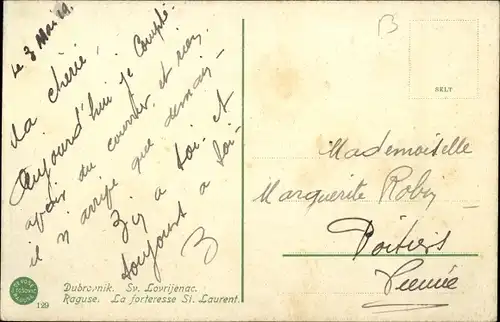 Le 3 Mai 29.
Ma chérie,
Aujourd'hui je compte
avoir du courrier, et rien
il n'arrive que demain
à toi et
toujours à toi.
B
B
SELT
Mademoiselle
Marguerite Robin
Poitiers
Vienne
Dubrovnik. Sv. Lovrijenac.
Raguse. La forteresse St. Laurent.
129